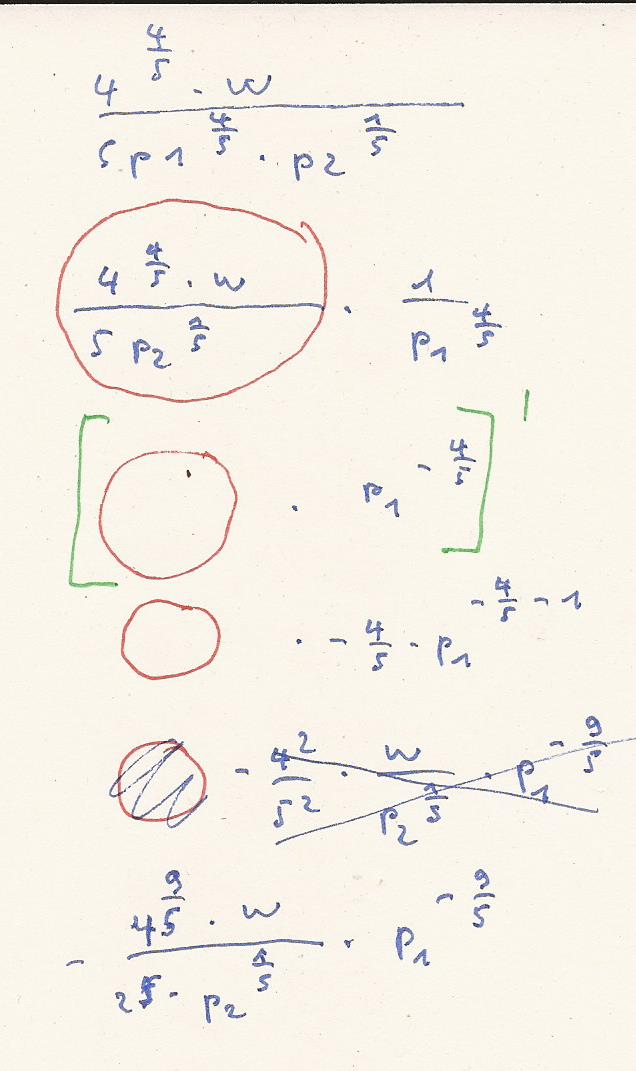 4^(4/5) · w
5 p1^(4/5) · p2^(1/5)
4^(4/5) · w / 5 p2^(1/5) · 1 / p1^(4/5)
[ · p1^(-4/5) ]'
· - 4/5 · p1^(-4/5 - 1)
- 4^2 / 5^2 · w / p2^(1/5) · p1^(-9/5)
- 4^(9/5) · w / 25 · p2^(1/5) · p1^(-9/5)